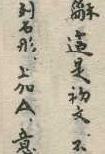 龢這是初文。不
到石形，上加亼，意